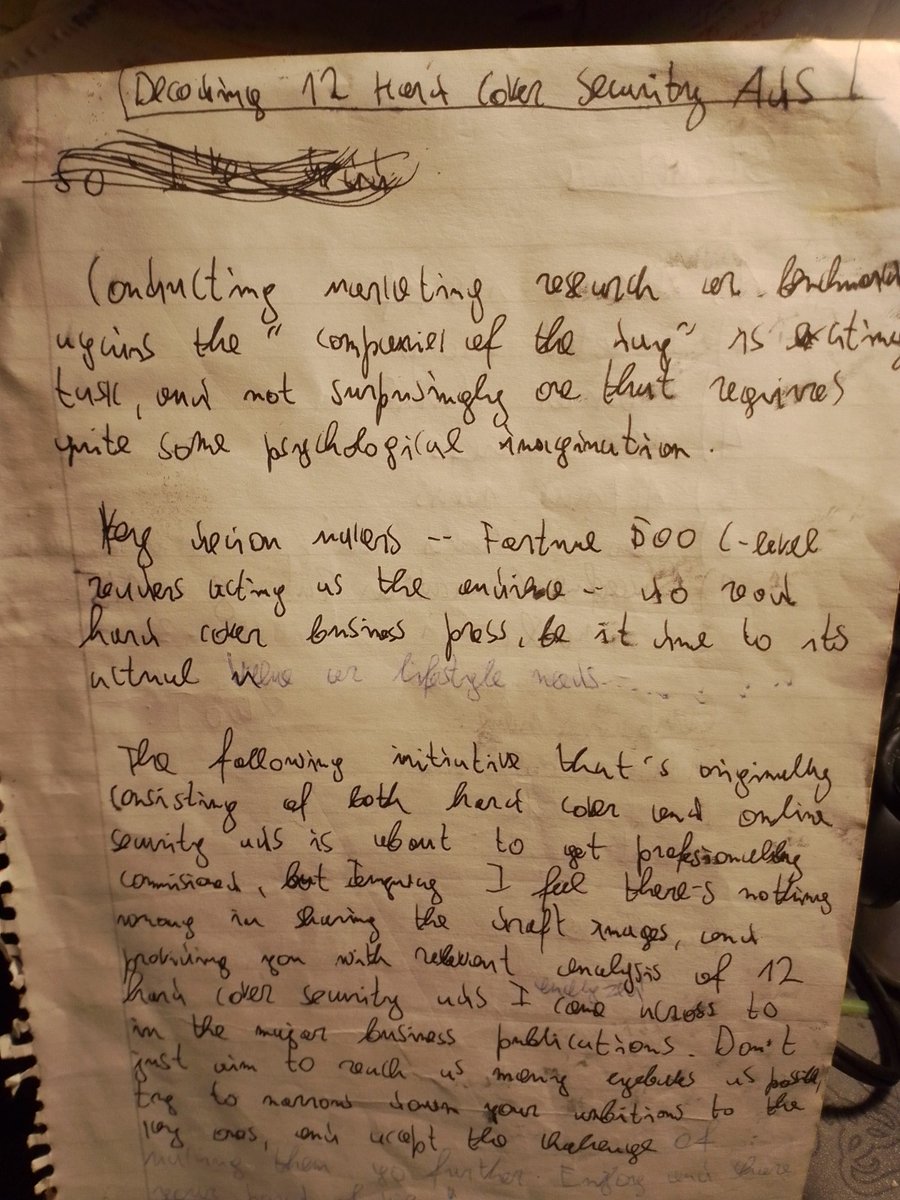 Decoding 12 Hard Cover Security Ads
so like
Conducting marketing research or benchmark
agains the "companies of the day" is exciting
task, and not surprisingly one that requires
quite some psychological imagination.
Key decision makers -- Fortune 500 C-level
readers acting as the audience -- do read
hard cover business press, be it due to its
actual value or lifestyle needs
The following initiative that's originally
consisting of both hard cover and online
security ads is about to get professionally
commisioned, but I feel there's nothing
wrong in sharing the draft images, and
providing you with relevant analysis of 12
hard cover security ads I came across to
in the major business publications. Don't
just aim to reach as many eyeballs as possible,
try to narrow down your ambitions to the
key ones, and accept the challenge of
making them go further. Enjoy and share